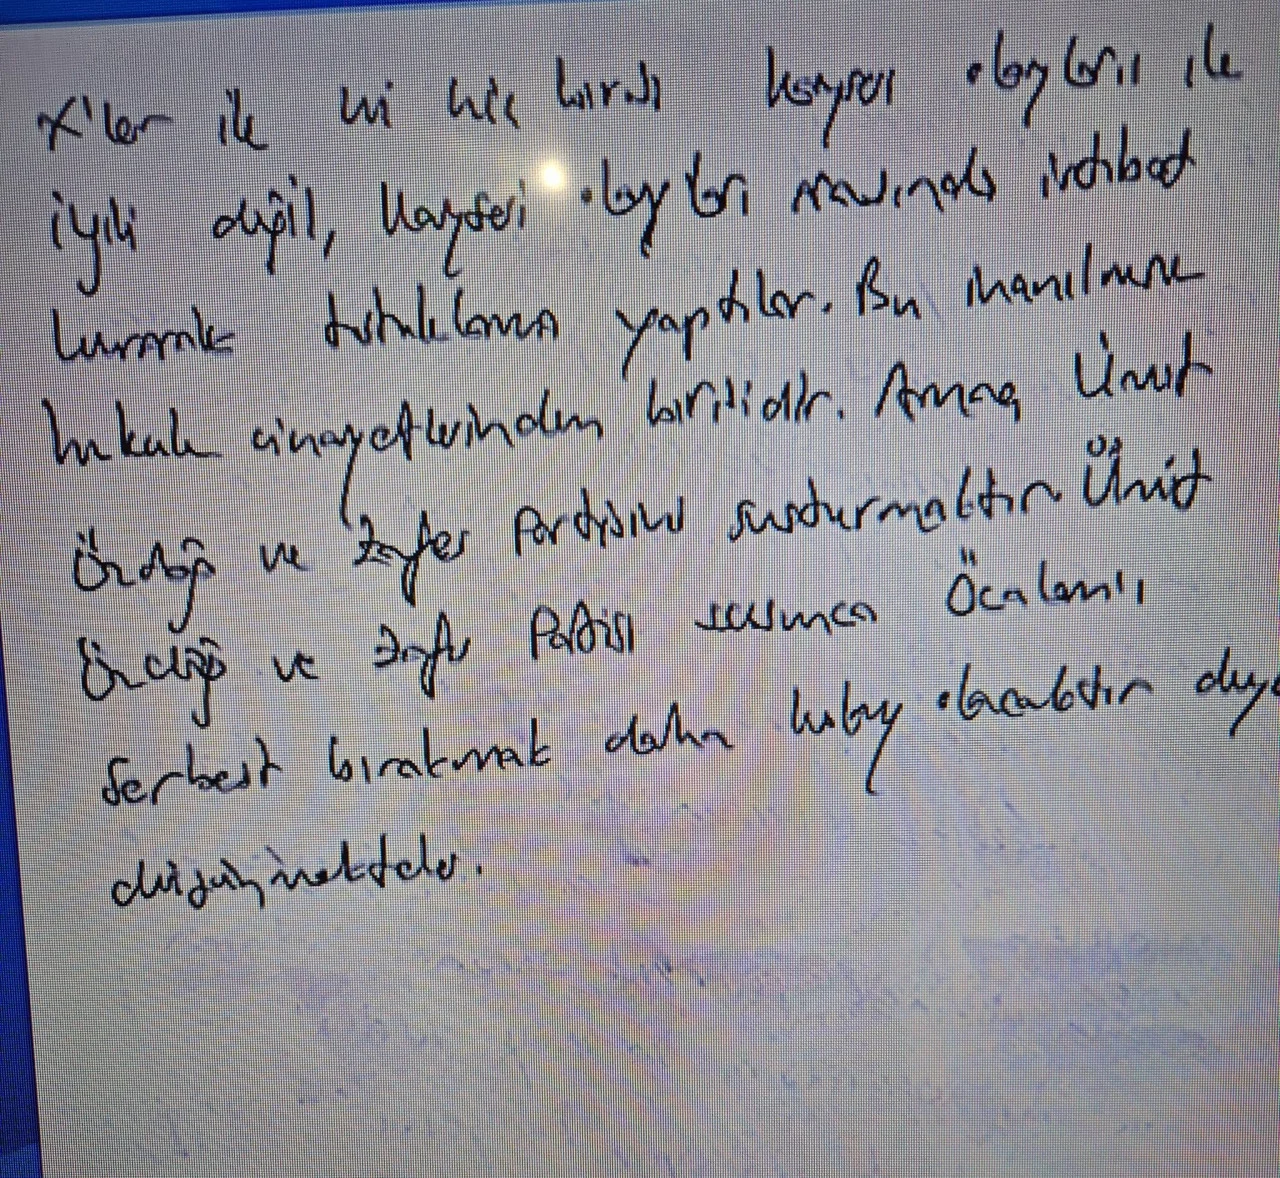 X'ler ile ki hiç birisi kayseri olayları ile
ilgili değil, Kayseri olayları arasında irtibat
kurarak tutuklama yaptılar. Bu inanılmaz
hukuk cinayetlerinden birisidir. Amaç Ümit
Özdağ ve Zafer Partisini susturmaktır. Ümit
Özdağ ve Zafer Partisi susunca Öcalan'ı
serbest bırakmak daha kolay olacaktır diye
düşünmekteler.